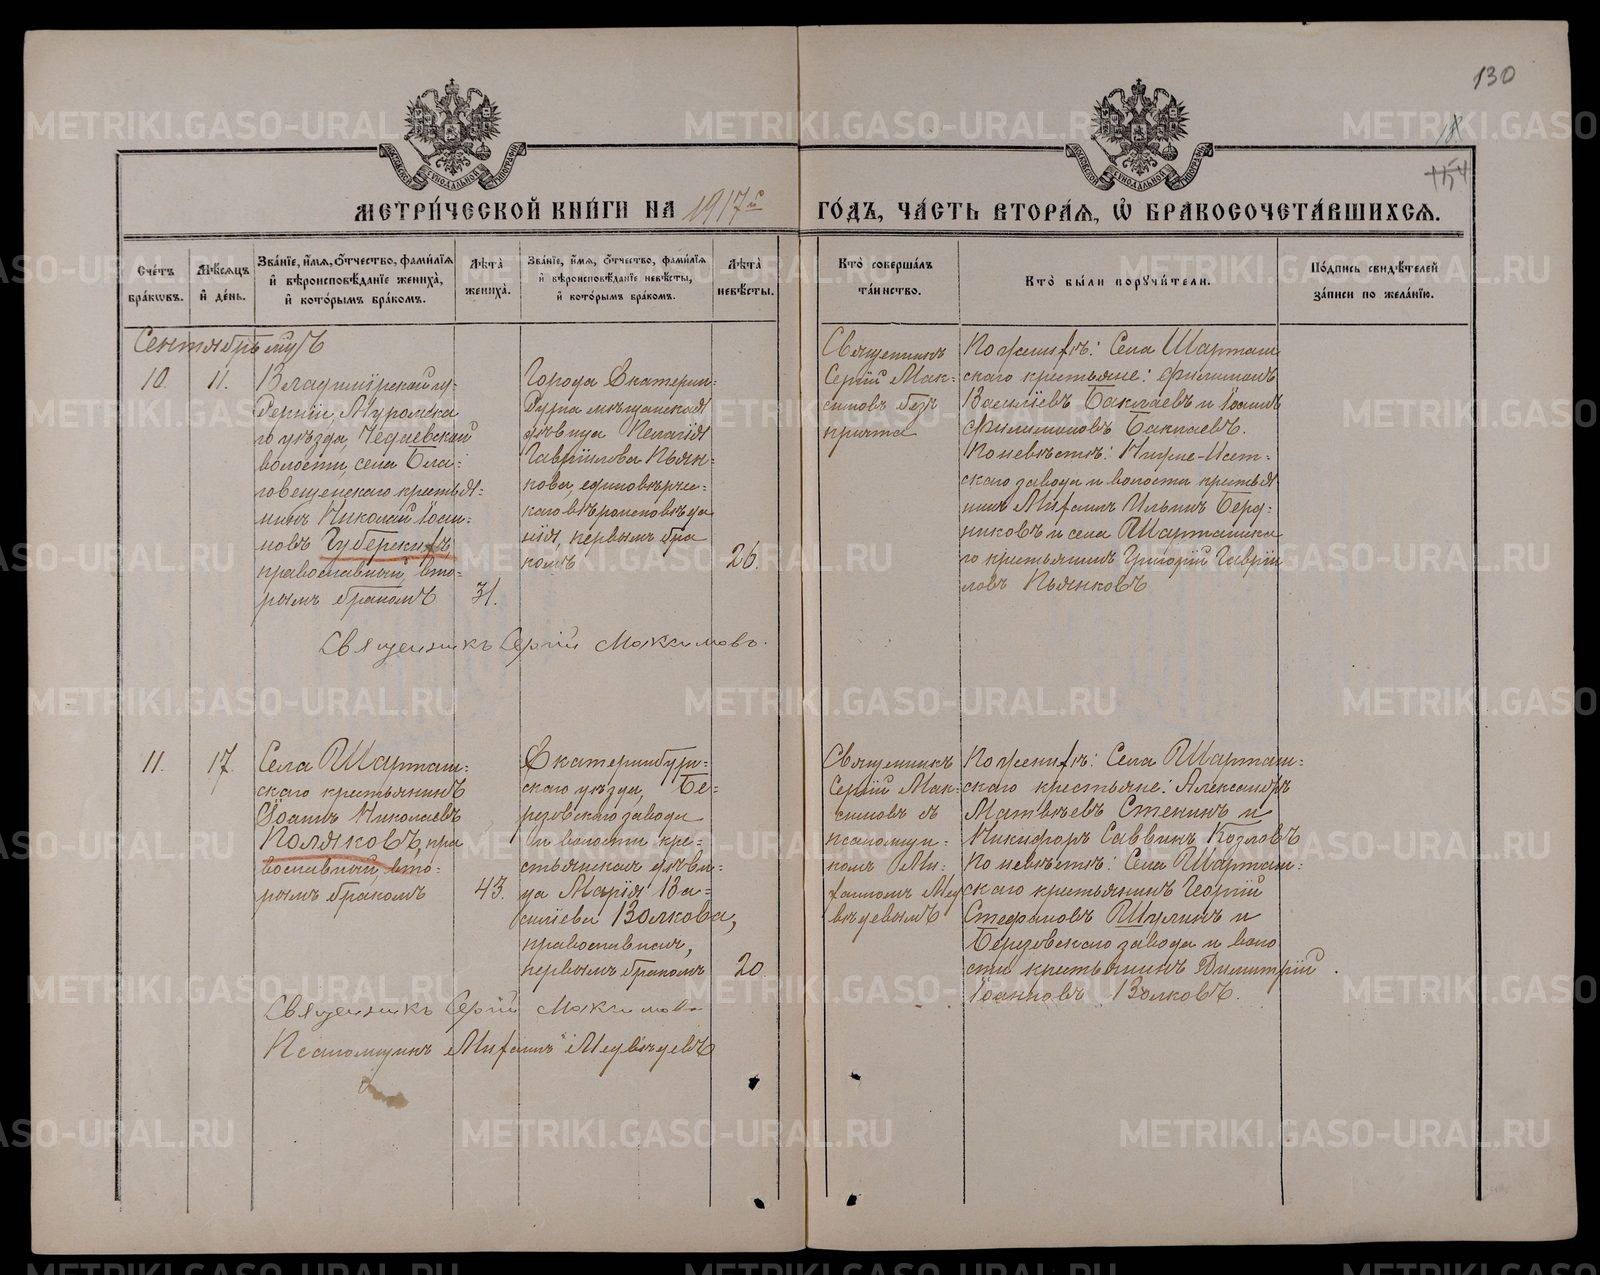 130
18
154
МЕТРИЧЕСКОЙ КНИГИ НА 1917й ГОДЪ, ЧАСТЬ ВТОРАЯ, Ѽ БРАКОСОЧЕТАВШИХСЯ.
Счетъ браковъ.
Мѣсяцъ и день.
Званіе, имя, отчество, фамилія и вѣроисповѣданіе жениха, и которымъ бракомъ.
Лѣта жениха.
Званіе, имя, отчество, фамилія и вѣроисповѣданіе невѣсты, и которымъ бракомъ.
Лѣта невѣсты.
Кто совершалъ таинство.
Кто были поручители.
Подпись свидѣтелей записи по желанію.
Сентябрь
10.
11.
Владимірской гу-
берніи, Муромска
го уѣзда,
волости, села Бла-
говещенскаго крестья-
нинъ Николай Іоан-
новъ Губерскихъ,
православный, вто-
рымъ бракомъ
31.
Города Екатерин-
бурга мѣщанская
дѣвица Пелагія
Гавріилова Пьян-
кова, единовѣрче-
скаго вѣроисповѣда
нія, первымъ бра
комъ
26.
Священникъ
Сергій Мак-
симовъ безъ
причта
По женихѣ: Села Шарташ
скаго крестьяне: Филимонъ
Василіевъ Баклаевъ и Іоаннъ
Филимоновъ Баклаевъ.
По невѣстѣ: Нижне-Исет-
скаго завода и волости крестья
нинъ Михаилъ Ильинъ Берд-
никовъ и села Шарташска
го крестьянинъ Григорій Гавріи
ловъ Пьянковъ
Священникъ Сергій Максимовъ.
11.
17.
Села Шарташ-
скаго крестьянинъ
Іоаннъ Николаевъ
Поляковъ, пра
вославный, вто-
рымъ бракомъ
43.
Екатеринбург-
скаго уѣзда, Бе-
резовскаго завода
и волости кре-
стьянская дѣви-
ца Марія Ва-
силіева Волкова,
православная,
первымъ бракомъ
20
Священникъ
Сергій Мак-
симовъ съ
псаломщи-
комъ Ми-
хаиломъ Мед
вѣдевымъ
По женихѣ: Села Шарташ-
скаго крестьяне: Александръ
Матвѣевъ Стенинъ и
Никифоръ Саввинъ Козловъ
По невѣстѣ: Села Шарташ-
скаго крестьянинъ Георгій
Стефановъ Шулинъ и
Березовскаго завода и воло
сти крестьянинъ Димитрій
Іоанновъ Волковъ.
Священникъ Сергій Максимовъ
Псаломщикъ Михаилъ Медвѣдевъ
METRIKI.GASO-URAL.RU